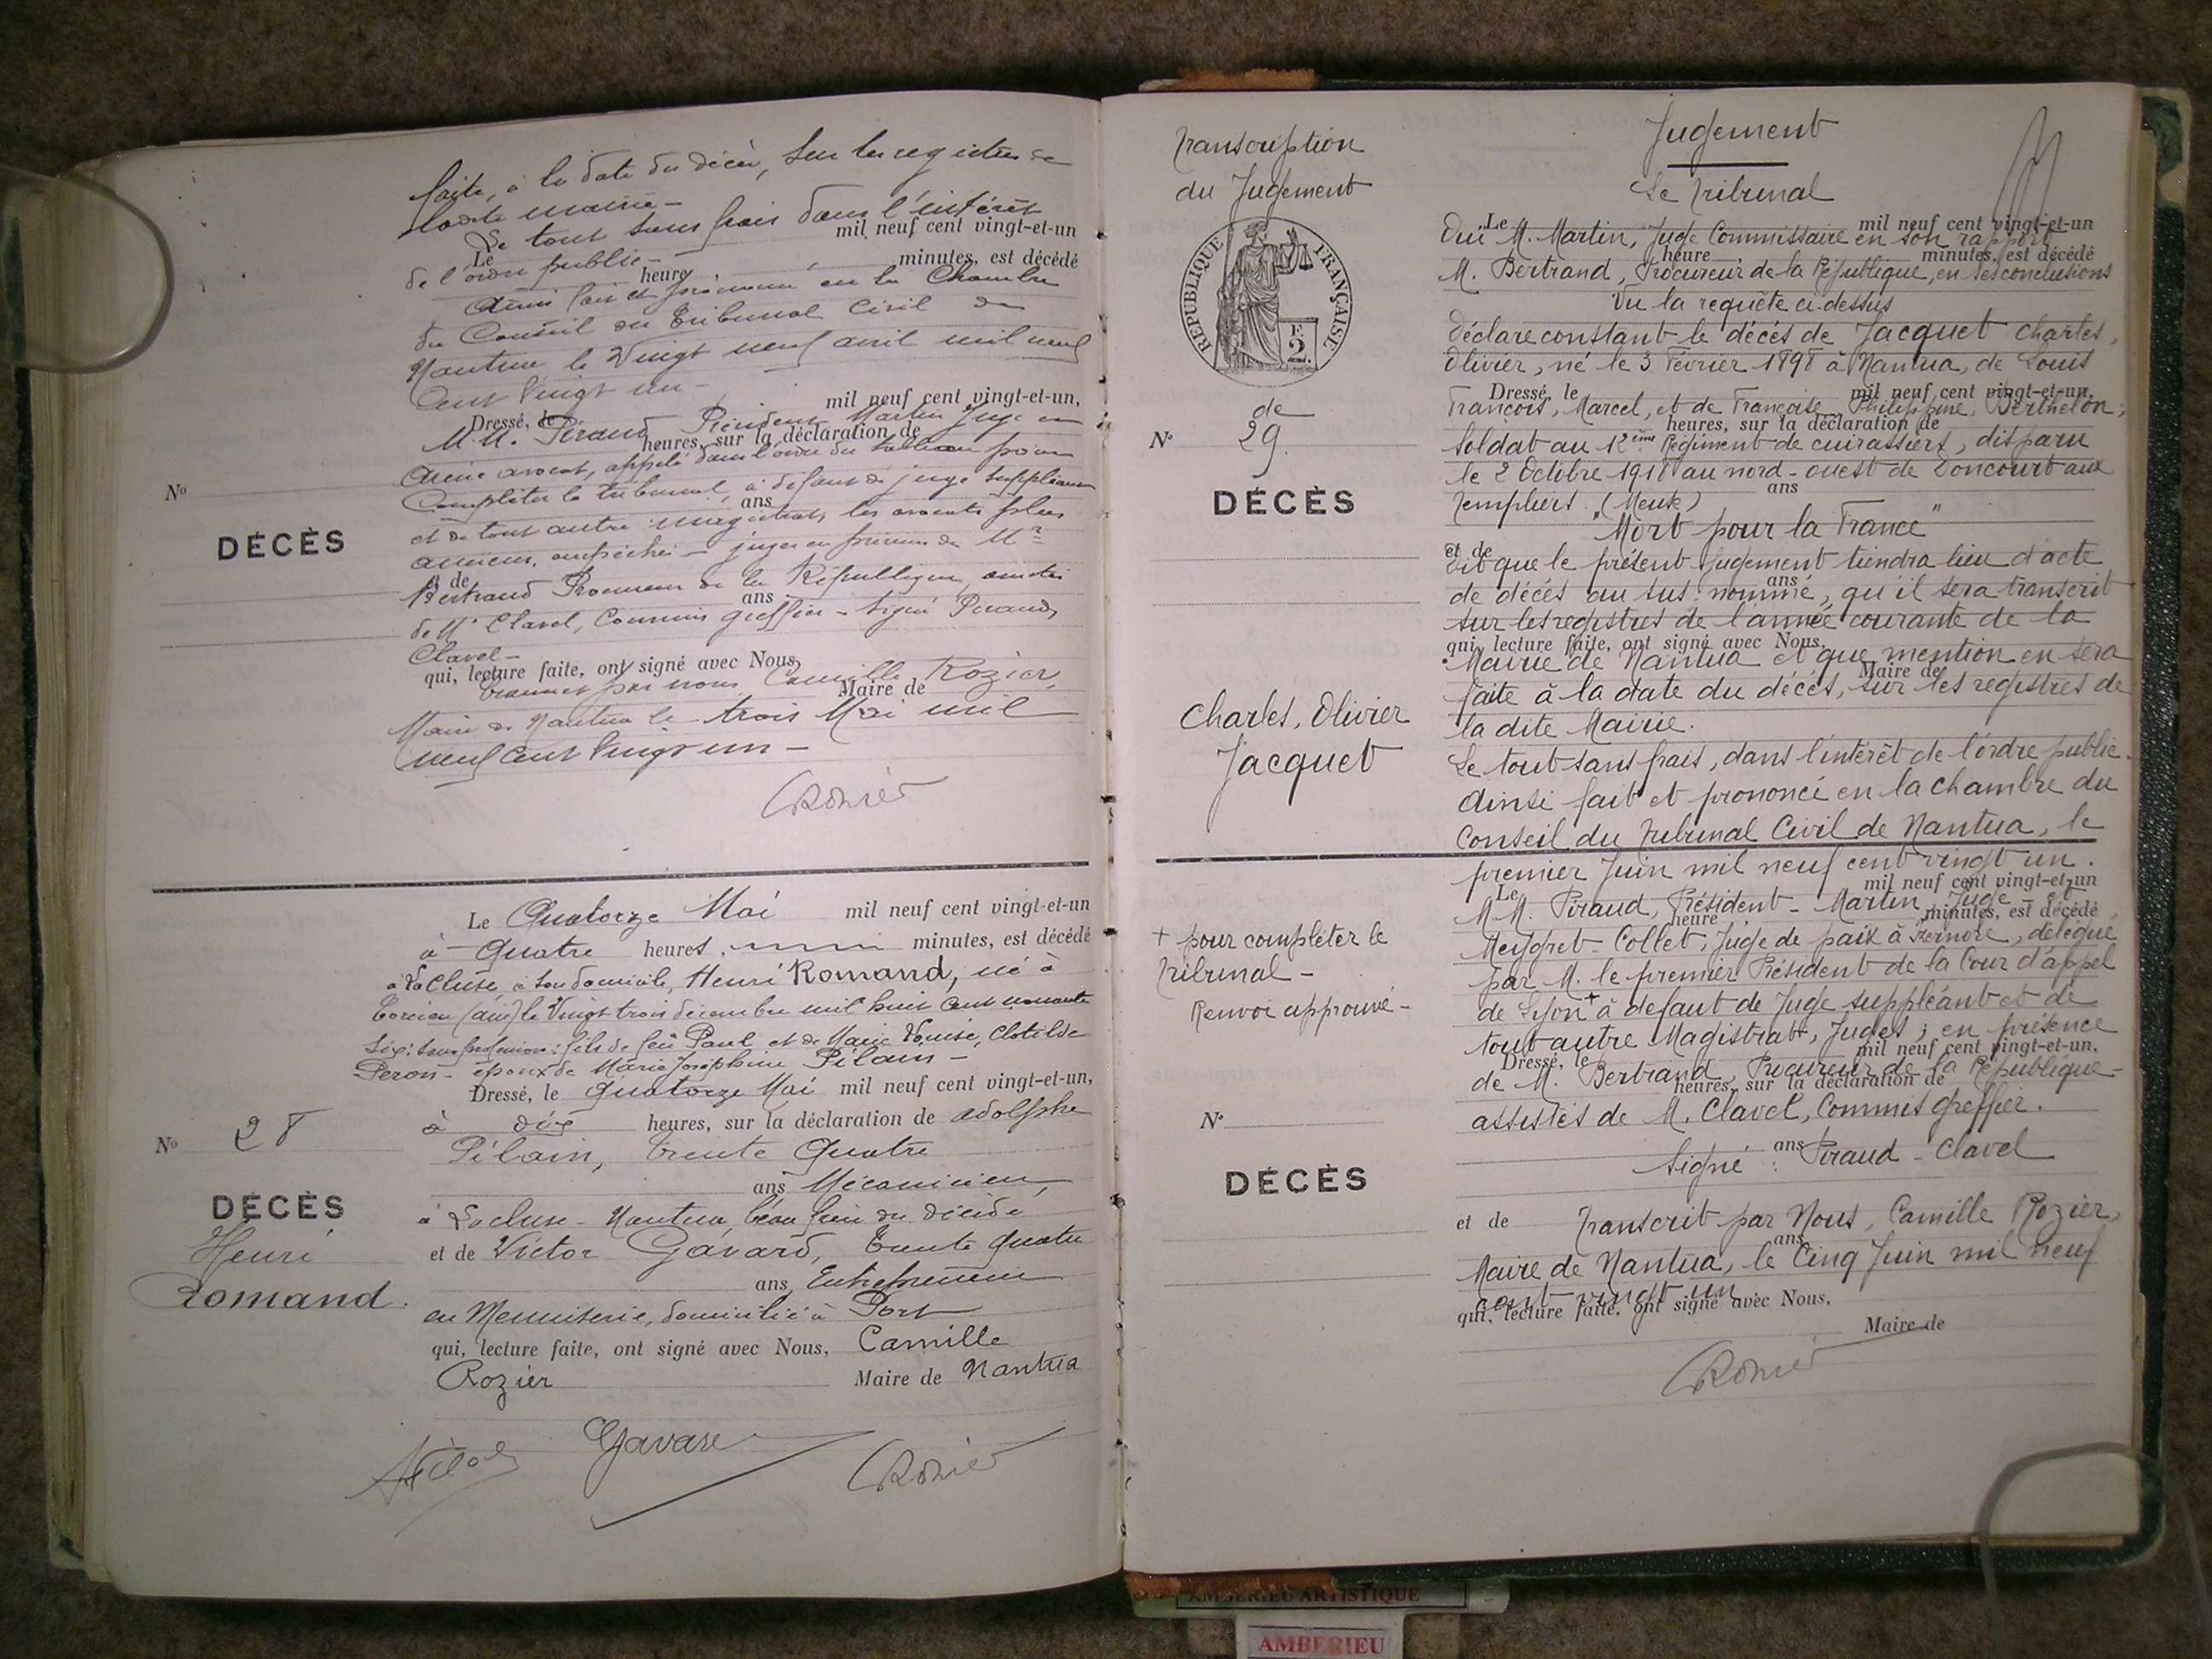 faite, à la date du décès, sur les registres de
ladite mairie -
Le tout sans frais dans l'intérêt
mil neuf cent vingt-et-un
Le
de l'ordre public -
minutes, est décédé
heure
Ainsi fait et prononcé en la Chambre
du Conseil du Tribunal Civil de
Nantua le Vingt neuf avril mil neuf
Cent Vingt un -
mil neuf cent vingt-et-un,
Dressé, le
M.M. Péraud Président Martin Juge en
heures, sur la déclaration de
avocat, appelé dans l'ordre du tableau pour
Compléter le tribunal, à défaut de juge suppléant
ans
et de tout autre magistrat, les avocats plus
anciens, empêchés - juges en présence de Mr
et de
Bertrand Procureur de la République, assistés
ans
de Mr Clavel, Commis greffier - Signé Péraud,
Clavel -
qui, lecture faite, ont signé avec Nous,
Transcrit par nous Camille Rozier,
Maire de
Maire de Nantua le trois Mai mil
neuf cent vingt un -
CRozier
No
DÉCÈS
Le Quatorze Mai mil neuf cent vingt-et-un
à Quatre heures, minutes, est décédé
à La Cluse, à son domicile, Henri Romand, né à
le Vingt trois décembre mil huit cent nonante
six; sans profession: fils de feu Paul et de Marie Louise, Clotilde
Peron - époux de Marie Joséphine Pélain -
Dressé, le Quatorze Mai mil neuf cent vingt-et-un,
à dix heures, sur la déclaration de Adolphe
Pélain, trente Quatre
ans Mécanicien,
à La cluse - Nantua, beau frère du décédé
et de Victor Gavard, trente quatre
ans, Entrepreneur
en Menuiserie, domicilié à Port
qui, lecture faite, ont signé avec Nous, Camille
Rozier Maire de Nantua
Gavard
CRozier
No 28
DÉCÈS
Henri
Romand.
Transcription
du Jugement
RÉPUBLIQUE FRANÇAISE
2
de
No 29.
DÉCÈS
Charles, Olivier
Jacquet
+ pour compléter le
tribunal -
Renvoi approuvé -
No
DÉCÈS
Jugement
Le Tribunal
Le mil neuf cent vingt-et-un
Ouï M. Martin, Juge Commissaire en son rapport
heure minutes, est décédé
M. Bertrand, Procureur de la République, en ses conclusions
Vu la requête ci-dessus
Déclare constant le décès de Jacquet Charles,
Olivier, né le 3 Février 1898 à Nantua, de Louis
Dressé, le mil neuf cent vingt-et-un,
François, Marcel, et de Françoise, Philippine, Berthelon;
heures, sur la déclaration de
Soldat au 12ème Régiment de cuirassiers, disparu
le 2 Octobre 1918 au nord-ouest de Doncourt aux
ans
Templiers. (Meuse)
"Mort pour la France"
et de
Dit que le présent Jugement tiendra lieu d'acte
ans
de décès au sus-nommé, qu'il sera transcrit
sur les registres de l'année courante de la
qui, lecture faite, ont signé avec Nous,
Mairie de Nantua et que mention en sera
Maire de
faite à la date du décès, sur les registres de
la dite Mairie.
Le tout sans frais, dans l'intérêt de l'ordre public.
Ainsi fait et prononcé en la chambre du
Conseil du Tribunal Civil de Nantua, le
premier Juin mil neuf cent vingt un.
Le mil neuf cent vingt-et-un
M.M. Piraud, Président - Martin, Juge - et
heure minutes, est décédé
Meygret-Collet, Juge de paix à Izernore, délégué
par M. le premier Président de la Cour d'appel
de Lyon + à défaut de Juge suppléant et de
tout autre Magistrat, Juges; en présence
Dressé, le mil neuf cent vingt-et-un,
de M. Bertrand, Procureur de la République -
heures, sur la déclaration de
assistés de M. Clavel, Commis greffier.
ans
Signé: Piraud - Clavel
et de
Transcrit par Nous, Camille Rozier,
ans
Maire de Nantua, le Cinq Juin mil neuf
cent vingt un
qui, lecture faite, ont signé avec Nous,
Maire de
CRozier
AMBERIEU ARTISTIQUE
AMBERIEU